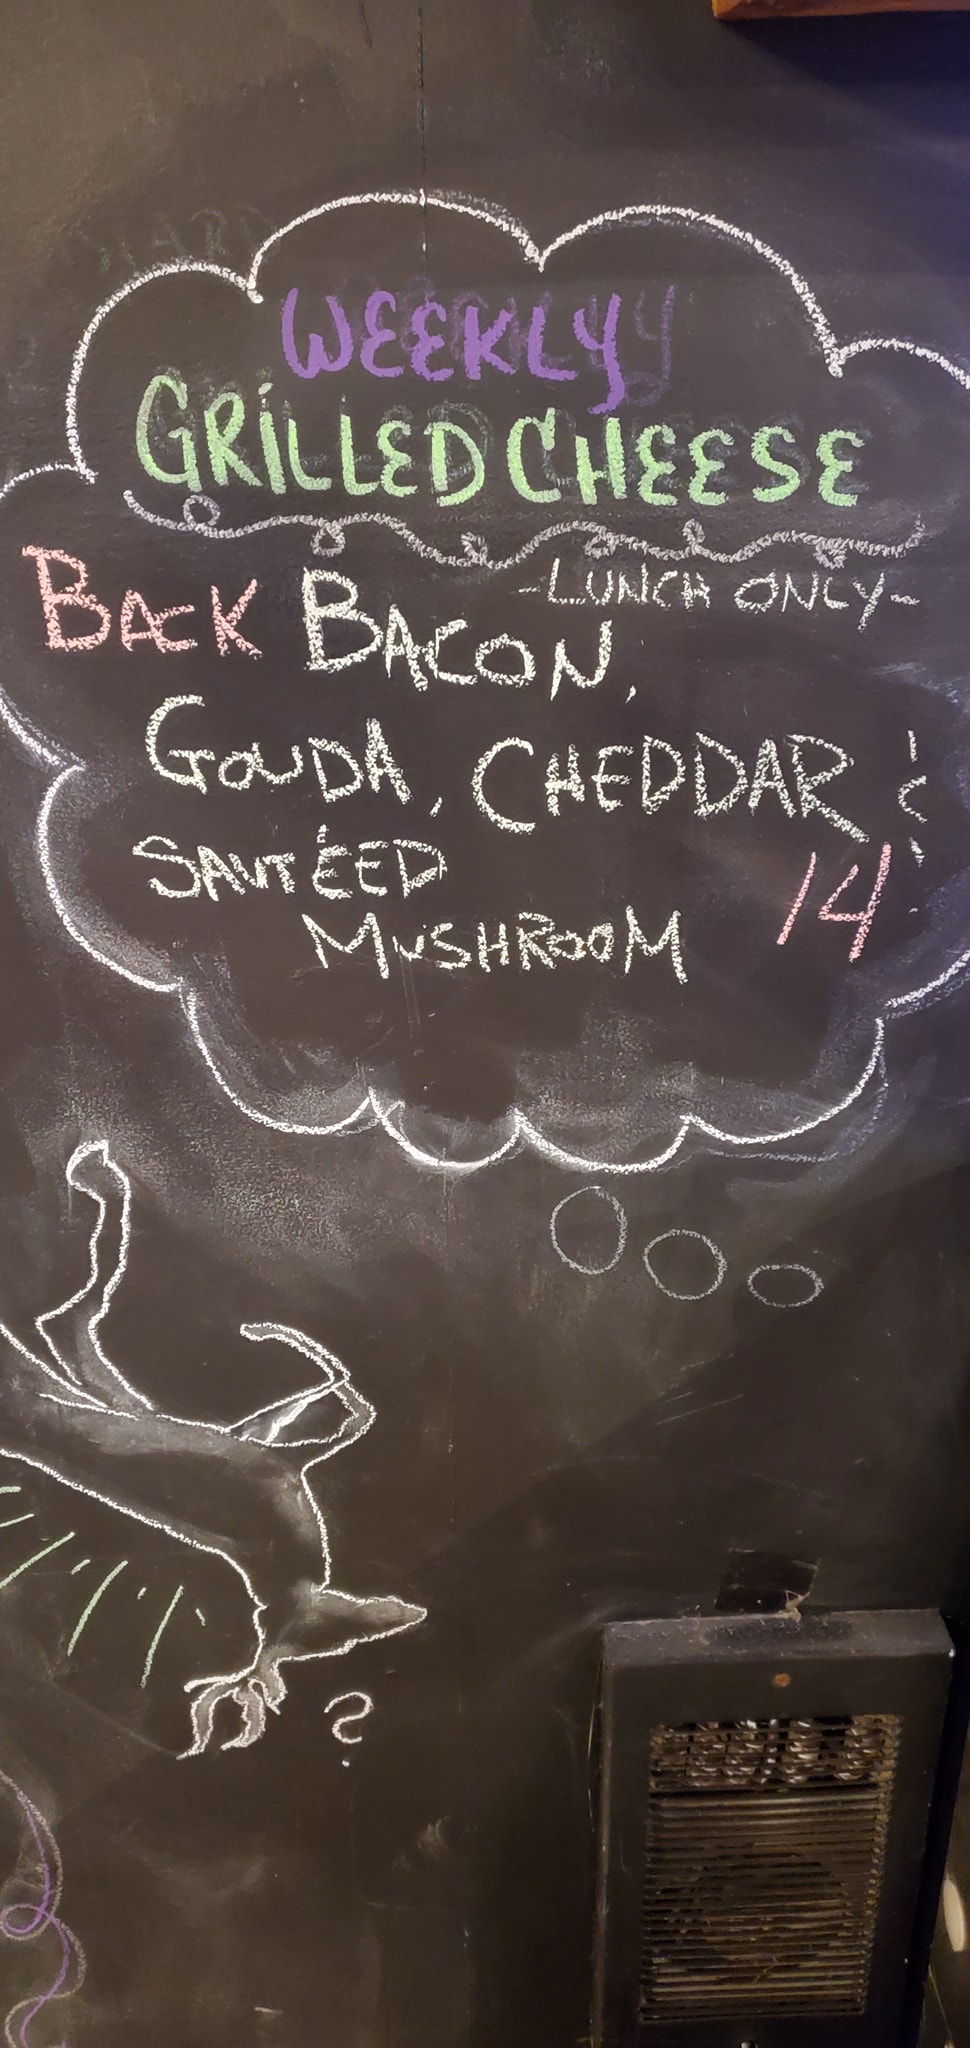 WEEKLY
GRILLED CHEESE
-LUNCH ONLY-
BACK BACON,
GOUDA, CHEDDAR &
SAUTÉED
MUSHROOM 14
?